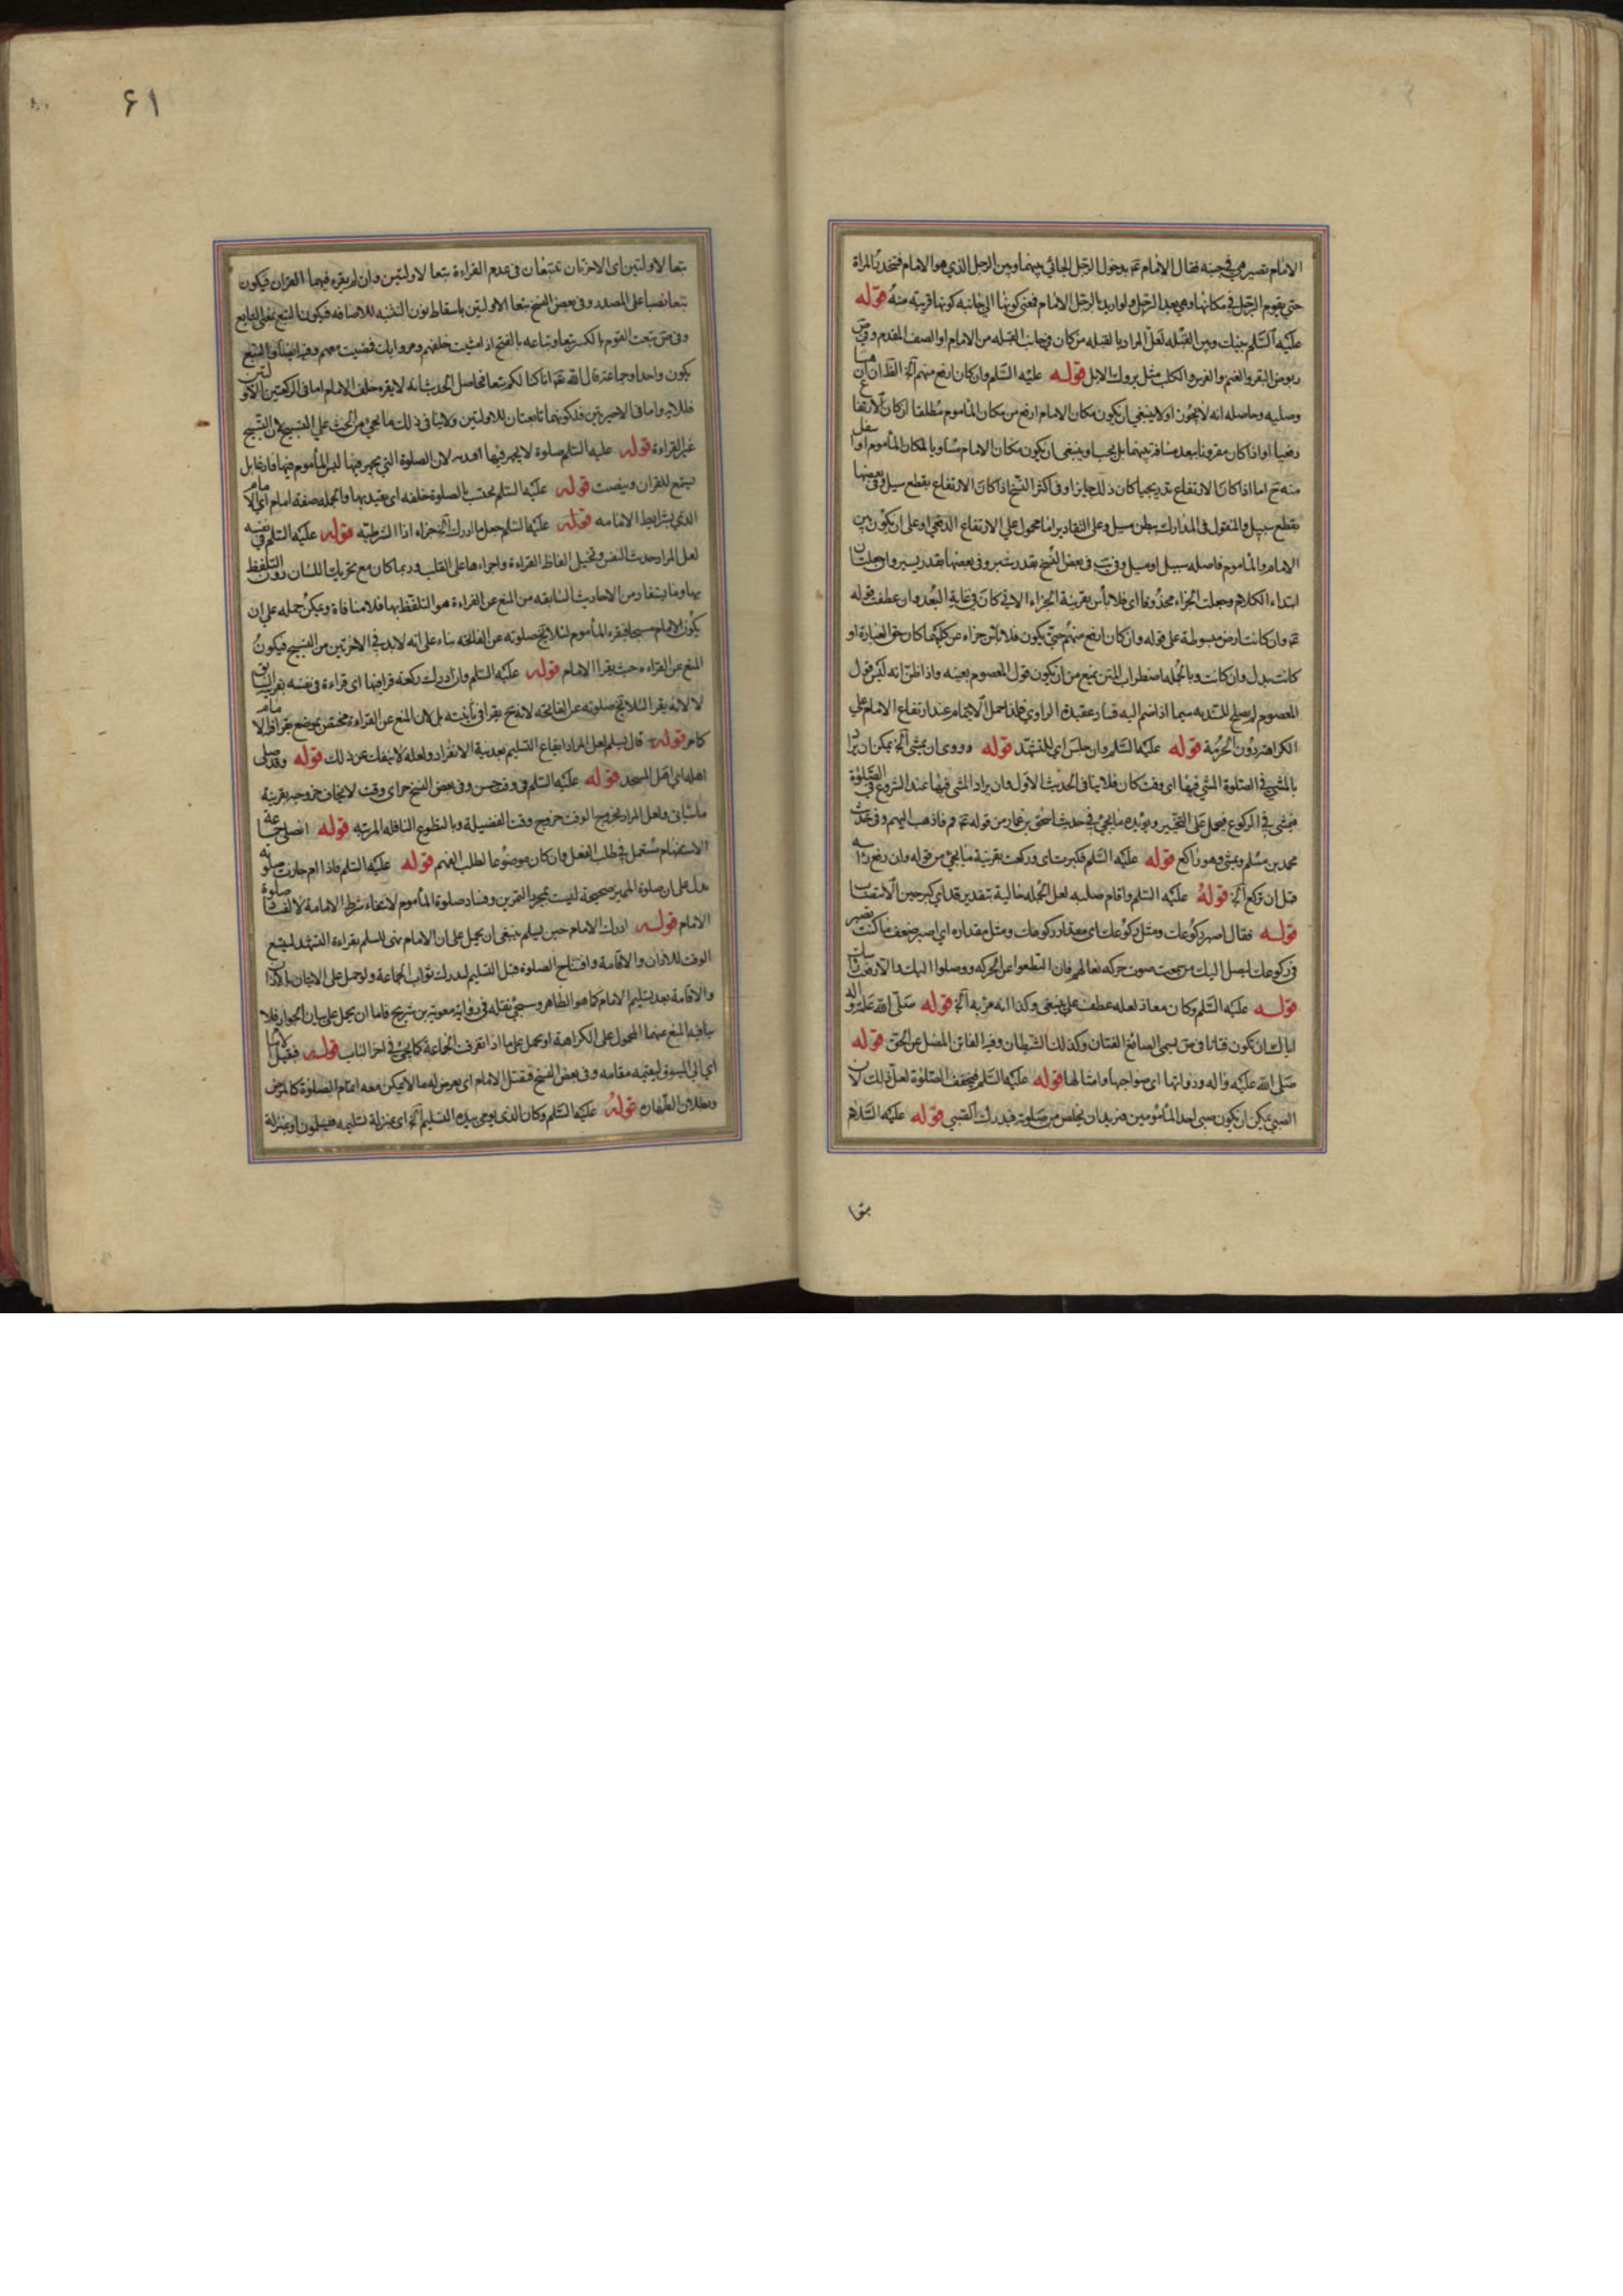 الامام تصير هي في جنبه فقال الامام ع بدخول الرجل الجائي بينهما وبين الرجل الذي هو الامام فتحدث المراة
حتى يقوم الرجل في مكانها وهي بعد الرجل ولو اريد بالرجل الامام فمعنى كونها الى جانبه كونها قريبة منه قوله
عليه السلم بينك وبين القبلة لعل المراد بالقبله من كان في جانب القبله من الامام او الصف المقدم وفي ص
ربوض البقر والغنم والفرس والكلب مثل بروك الابل قوله عليه السلم وان كان ارفع منهم الخ الظ ان ان
وصلية وحاصله انه لا يجوز او لا ينبغي ان يكون مكان الامام ارفع من مكان المأموم مطلقا ان كان الارتفاع
دفعيا او اذا كان مقرونا ببعد مسافة بينهما بل يجب او ينبغي ان يكون مكان الامام مساويا لمكان المأموم او اسفل
منه نعم اما اذا كان الارتفاع تدريجيا كان ذلك جايزا وفي اكثر النسخ اذا كان الارتفاع بقطع سيل وفي بعضها
بقطع سبيل والمنقول في المدارك ببطن مسيل وعلى التقادير اما محمول على الارتفاع الدفعي او على ان يكون بين
الامام والمأموم فاصله سبيل او ميل وفي يب في بعض النسخ بقدر شبر وفي بعضها بقدر يسير وان جعلت ان
ابتداء الكلام وجعلت الجزاء محذوفا اى فلا بأس بقرينة الجزاء الاتي كان في غاية البعد وان عطفت قوله
ع وان كانت ارض مبسوطة على قوله وان كان ارفع منهم حتى يكون فلا بأس جزاء عن كليهما كان حق العبارة او
كانت بدل وان كانت وبالجمله اضطراب المتن يمنع من ان يكون قول المعصوم بعينه واذا ظن انه ليس قول
المعصوم لم يصلح للتمسك به سيما اذا ضم اليه فساد عقيدة الراوي فلذا حمل الايتمام عند ارتفاع الامام على
الكراهة دون الحرمة قوله عليه السلم وان جلس اي للتشهد قوله وروى ان يمشى الخ يمكن ان يراد
بالمشي في الصلوة المشي فيها اى وقت كان فلا ينافى الحديث الاول وان يراد المشي فيها عند الشروع في الصلوة
فيمشى في الركوع فيحمل على التخيير ويؤيده ما يجئ في حديث اسحق بن عمار من قوله ع قم فاذهب اليهم وفي حديث
محمد بن مسلم ويمشى وهو راكع قوله عليه السلم فكبرت اى وركعت بقرينة ما يجئ من قوله وان رفع رأسه
قبل ان تركع الخ قوله عليه السلم واقام صلبه لعل الجمله حالية بتقدير قد اي كبر حين الانتصاب
قوله فقال اصبر ركوعك ومثل ركوعك اى مقدار ركوعك ومثل مقداره اي اصبر ضعف ما كنت تصبر
في ركوعك ليصل اليك من سمعت صوت حركة نعالهم فان انقطعوا عن الحركه ووصلوا اليك والا رفعت راسك
قوله عليه السلم وكان معاذ لعله عطف على ينبغى وكذا انه مر به الخ قوله صلى الله عليه واله
اياك ان تكون فتانا في ق يسمى الصائغ الفتان وكذلك الشيطان وفيه الفاتن المضل عن الحق قوله
صلى الله عليه واله وذواتها اى صواحبها وامثالها قوله عليه السلم فيخفف الصلوة لعل ذلك لان
الصبي يمكن ان يكون صبى احد المأمومين فيريد ان يخلص من صلوته فيدرك الصبي قوله عليه السلام
تبعا
۶۱
تبعا الاولتين اى الاخرتان تتبعان في عدم القراءة تبعا لاولتين وان لم يقرء فيهما القران فيكون
تبعا نصبا على المصدر وفي بعض النسخ تبعا الاولتين باسقاط نون التثنيه للاضافه فيكون التبع بمعنى التابع
وفى ق تبعت القوم بالكسر تبعا وتباعه بالفتح اذا مشيت خلفهم ومروا بك فمضيت معهم وفيه ايضا والتبع
يكون واحدا وجماعة قال الله تع انا كنا لكم تبعا فحاصل الحديث انه لا يقرء خلف الامام اما في الركعتين الاولتين
فللاية واما في الاخيرتين فلكونهما تابعتان للاولتين ولا ينافى ذلك ما يجئ من الحث على التسبيح لان التسبيح
غير القراءة قوله عليه السلم صلوة لا يجهر فيها الخ لان الصلوة التي يجهر فيها ليس المأموم فيها فارغا بل
يستمع للقران وينصت قوله عليه السلم تحتسب بالصلوة خلفه اى يعتد بها والجمله صفة امام اى الامام
الذي بشرايط الامامه قوله عليه السلم جعل ما ادرك الخ جزاء اذا الشرطيه قوله عليه السلم في نفسه
لعل المراد حديث النفس وتخييل الفاظ القراءة واجراءها على القلب وربما كان مع تحريك اللسان دون التلفظ
بها وما يستفاد من الاحاديث السابقه من المنع عن القراءة هو التلفظ بها فلا منافاة ويمكن حمله على ان
يكون الامام مسبحا فيقرء المأموم لئلا يخ صلوته عن الفاتحه بناء على انه لا بد في الاخرتين من التسبيح فيكون
المنع عن القراءه حيث يقرا الامام قوله عليه السلم وان ادرك ركعة قرا فيها اى قراءة في نفسه بقرينة السابق
لا لانه يقرا لئلا يخ صلوته عن الفاتحه لانه يقرا في ثانيته بل لان المنع عن القراءة مختص بموضع يقرا فيه الامام
كما مر قوله قال يسلم لعل المراد ايقاع التسليم بعد نية الانفراد ولعله لا ينفك عن ذلك قوله وقد صلى
اهله اي اهل المسجد قوله عليه السلم في وقت حسن وفي بعض النسخ حر اى وقت لا يخاف خروجه بقرينة
ما سيأتى ولعل المراد بخروج الوقت خروج وقت الفضيلة وبالتطوع النافله المرتبه قوله اتصلى جماعة
الاستفهام مستعمل في طلب الفعل وان كان موضوعا لطلب الفهم قوله عليه السلم فاذا ام جازت صلوته
يدل على ان صلوة المميز صحيحة ليست بمجرد التمرين وفساد صلوة المأموم لانتفاء شرط الامامة لا لفساد صلوة
الامام قوله ادرك الامام حين يسلم ينبغى ان يحمل على ان الامام نسى السلم بقراءة التشهد ليتسع
الوقت للاذان والاقامة وافتتاح الصلوة قبل التسليم ليدرك ثواب الجماعة ولو حمل على الاتيان بالاذان
والاقامة بعد تسليم الامام كما هو الظاهر وسيجئ نقله في رواية معوية بن شريح فاما ان يحمل على بيان الجواز فلا
ينافيه المنع عنهما المحمول على الكراهة او يحمل على ما اذا تفرقت الجماعة كما يجئ في اخر الباب قوله
اي الى المسبوق ليقيمه مقامه وفي بعض النسخ فيقتل الامام اى يعرض له ما لا يمكن معه اتمام الصلوة كالمرض
وبطلان الطهارة قوله عليه السلم وكان الذى يومى بيده التسليم الخ اى بمنزلة تسليمه فيسلمون او بمنزلة